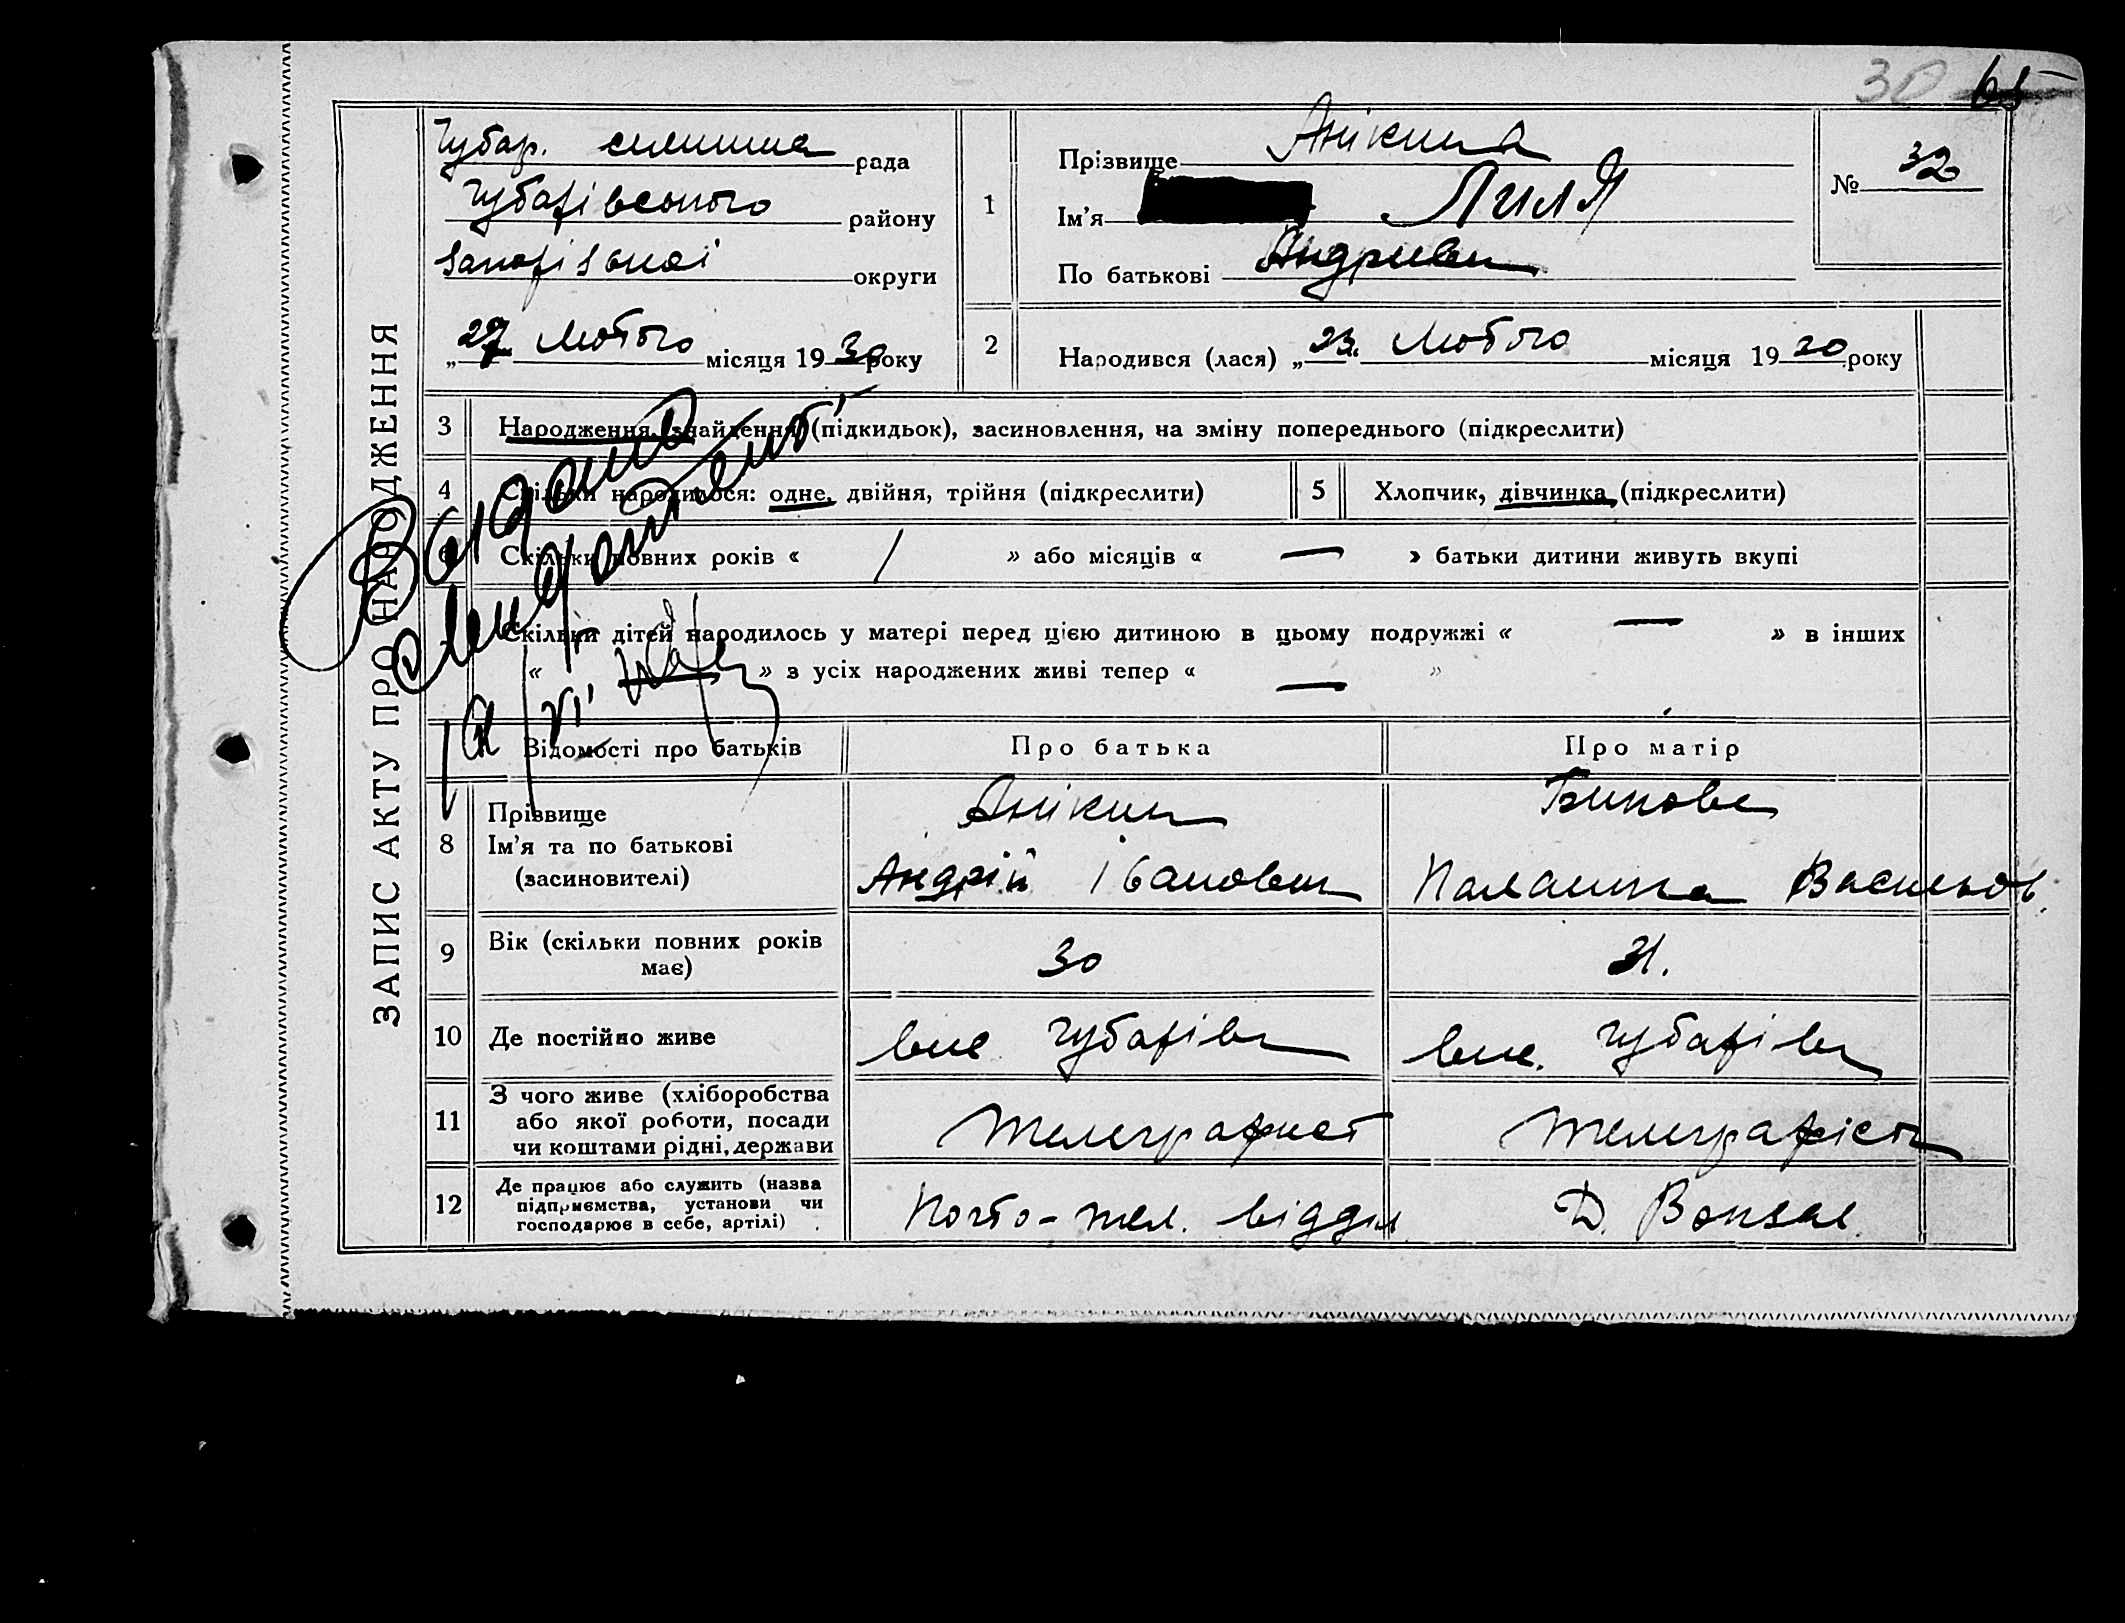 30 65
ЗАПИС АКТУ ПРО НАРОДЖЕННЯ
Чубар. селищна рада
Чубарівського району
Запорізької округи
„27 Лютого місяця 1930 року
1
Прізвище Анікина
Ім'я Лиля
По батькові Андриевн
№ 32
2
Народився (лася) „23“ Лютого місяця 19 року
3 Народження, знайдення (підкидьок), засиновлення, на зміну попереднього (підкреслити)
4 Скільки народилося: одне, двійня, трійня (підкреслити)
5 Хлопчик, дівчинка (підкреслити)
6 Скільки повних років « / » або місяців « — » батьки дитини живуть вкупі
Скільки дітей народилось у матері перед цією дитиною в цьому подружжі « — » в інших
« — » з усіх народжених живі тепер « — »
Відомості про батьків
Про батька
Про матір
8
Прізвище
Ім'я та по батькові
(засиновителі)
Анікин
Андрій Іванович
Бикова
Палашка Васильов.
9 Вік (скільки повних років має)
30
31.
10 Де постійно живе
Чубарівк
Чубарівк
11
З чого живе (хліборобства
або якої роботи, посади
чи коштами рідні, держави
Телеграфист
Телеграфістк
12
Де працює або служить (назва
підприємства, установи чи
господарює в себе, артілі)
Почто-тел. відділ